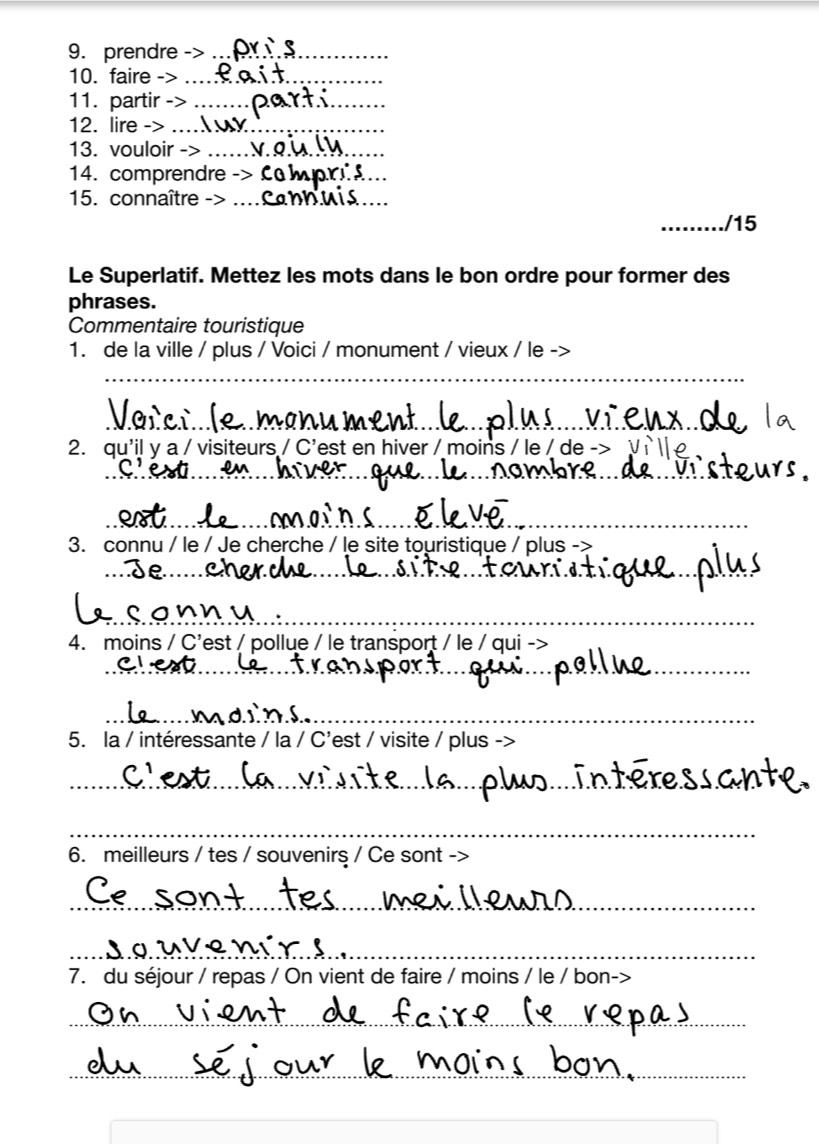 9. prendre -> ...pris...............
10. faire -> ....fait.................
11. partir -> ........parti.........
12. lire -> ....lur.......................
13. vouloir -> ......voulu......
14. comprendre -> compris...
15. connaître -> ....connuis.....
........./15
Le Superlatif. Mettez les mots dans le bon ordre pour former des
phrases.
Commentaire touristique
1. de la ville / plus / Voici / monument / vieux / le ->
Voici le monument le plus vieux de la
2. qu'il y a / visiteurs / C'est en hiver / moins / le / de -> ville
C'est en hiver que le nombre de visteurs.
est le moins élevé.
3. connu / le / Je cherche / le site touristique / plus ->
Je cherche le site touristique plus
le connu.
4. moins / C'est / pollue / le transport / le / qui ->
c'est le transport qui pollue
le moins.
5. la / intéressante / la / C'est / visite / plus ->
C'est la visite la plus intéressante.
6. meilleurs / tes / souvenirs / Ce sont ->
Ce sont tes meilleurs
souvenirs.
7. du séjour / repas / On vient de faire / moins / le / bon->
On vient de faire le repas
du séjour le moins bon.